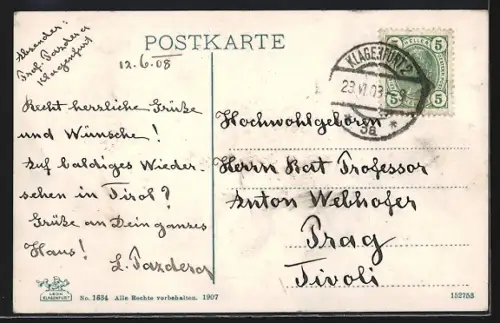 Absender:
Prof. Pazdera
Klagenfurt
POSTKARTE
5 HELLER 5
5 5
KLAGENFURT 2
23.VI.08
5a
12.6.08
Recht herzliche Grüße
und Wünsche!
Auf baldiges Wieder-
sehen in Tirol?
Grüße an Dein ganzes
Haus!
L. Pazdera
Hochwohlgeboren
Herrn Rat Professor
Anton Webhofer
Prag
Tivoli
LEON
KLAGENFURT
No. 1634 Alle Rechte vorbehalten. 1907
152753